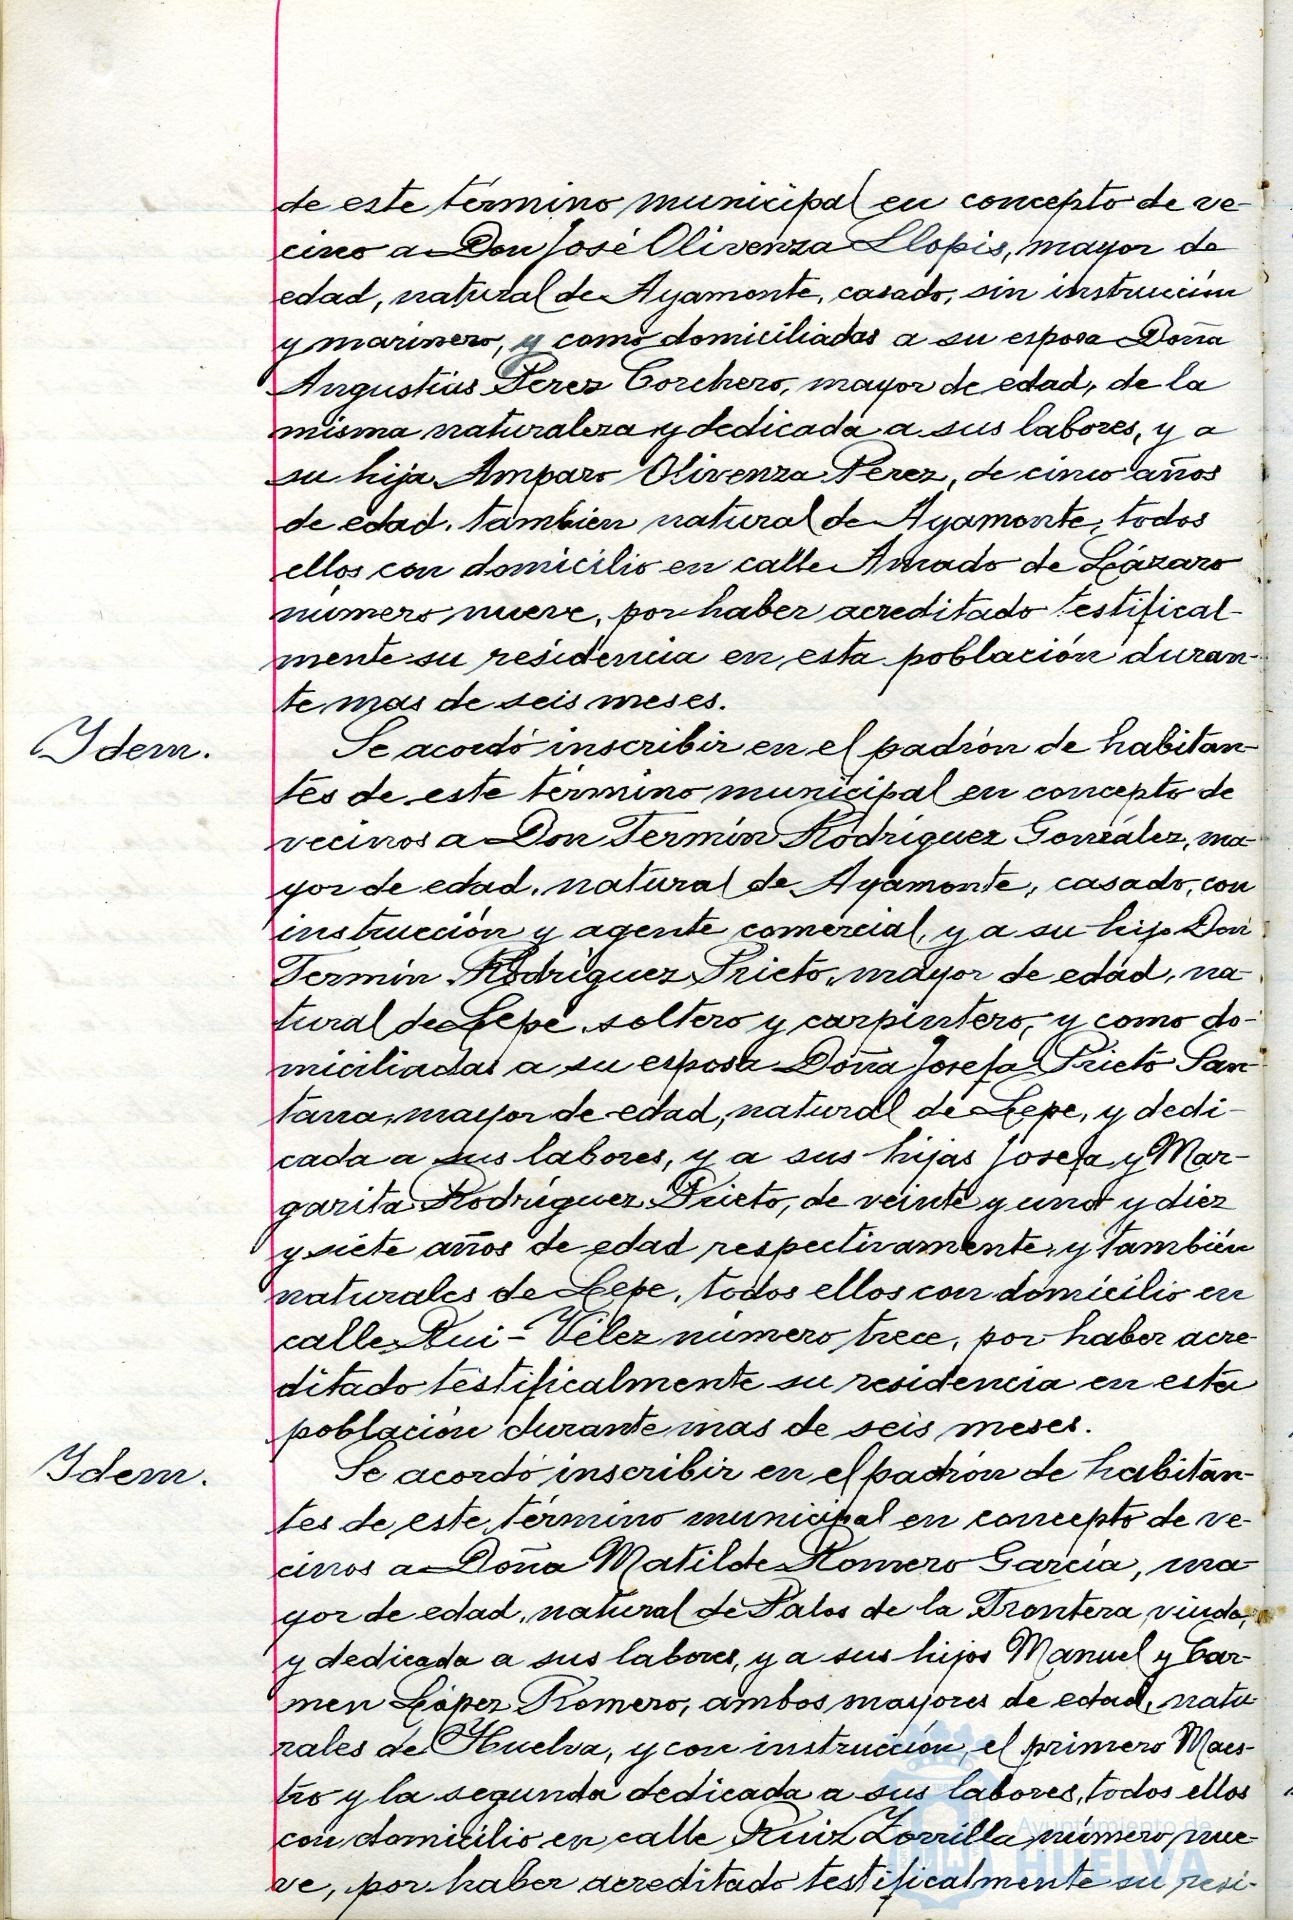 de este término municipal en concepto de ve-
cino a Don José Olivenza Llopis, mayor de
edad, natural de Ayamonte, casado, sin instrucción
y marinero, y como domiciliadas a su esposa Doña
Angustias Perez Corchero, mayor de edad, de la
misma naturaleza y dedicada a sus labores, y a
su hija Amparo Olivenza Perez, de cinco años
de edad, tambien natural de Ayamonte, todos
ellos con domicilio en calle Amado de Lázaro
número nueve, por haber acreditado testifical-
mente su residencia en esta población duran-
te mas de seis meses.
Idem.
Se acordó inscribir en el padrón de habitan-
tes de este término municipal en concepto de
vecinos a Don Fermín Rodríguez González, ma-
yor de edad, natural de Ayamonte, casado, con
instrucción y agente comercial, y a su hijo Don
Fermín Rodríguez Prieto, mayor de edad, na-
tural de Lepe, soltero y carpintero, y como do-
miciliadas a su esposa Doña Josefa Prieto San-
tana, mayor de edad, natural de Lepe, y dedi-
cada a sus labores, y a sus hijas Josefa y Mar-
garita Rodríguez Prieto, de veinte y uno y diez
y siete años de edad respectivamente, y también
naturales de Lepe, todos ellos con domicilio en
calle Rui-Vélez número trece, por haber acre-
ditado testificalmente su residencia en esta
población durante mas de seis meses.
Idem.
Se acordó inscribir en el padrón de habitan-
tes de este término municipal en concepto de ve-
cinos a Doña Matilde Romero García, ma-
yor de edad, natural de Palos de la Frontera, viuda,
y dedicada a sus labores, y a sus hijos Manuel y Car-
men López Romero, ambos mayores de edad, natu-
rales de Huelva, y con instrucción, el primero Maes-
tro y la segunda dedicada a sus labores, todos ellos
con domicilio en calle Ruiz Zorrilla número nue-
ve, por haber acreditado testificalmente su resi-
Ayuntamiento de
HUELVA